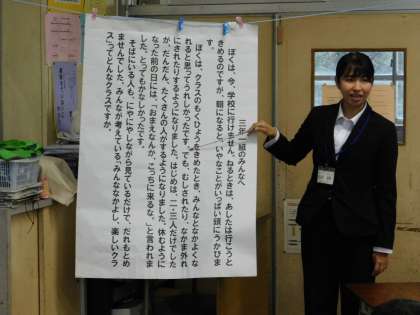 三年一組のみんなへ
ぼくは、今、学校に行けません。ねるときは、あしたは行こうと
きめるのですが、朝になると、いやなことがいっぱい頭にうかびま
す。
ぼくは、クラスのもくひょうをきめたとき、みんなとなかよくな
れると思ってうれしかったです。でも、むしされたり、なかま外れ
にされたりするようになりました。はじめは、二・三人だけでした
が、だんだん、たくさんの人がするようになりました。休むように
なった前の日には、「おまえなんか、こっちに来るな。」と言われま
した。とってもかなしかったです。
そばにいる人も、にやにやしながら見ているだけで、だれもとめ
ませんでした。みんなが考えている、みんななかよし、楽しいクラ
ス」ってどんなクラスですか。